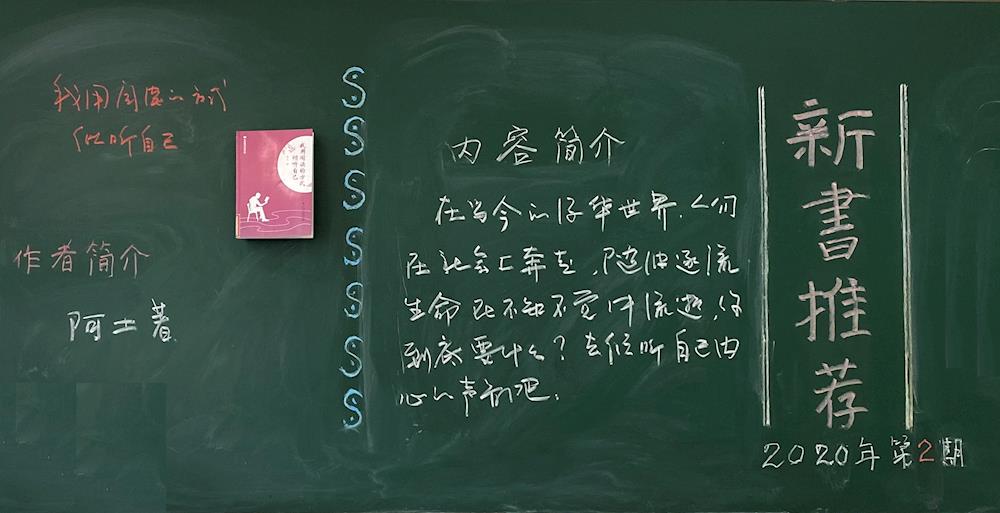 我用阅读的方式
倾听自己
我用阅读的方式
倾听自己
作者简介
阿土著
内容简介
在当今的浮华世界,人们
在社会上奔走,随波逐流
生命在不知不觉中流逝,你
到底要什么?去倾听自己内
心的声音吧.
新書推荐
2020年第2期